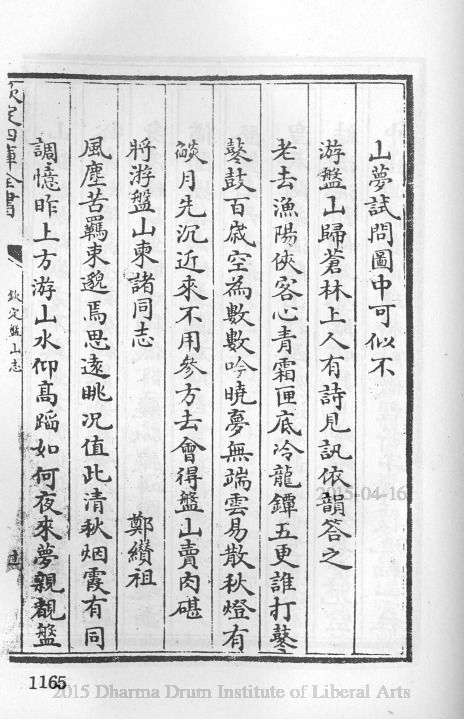 山夢試問圖中可似不
游盤山歸蒼林上人有詩見訊依韻答之
老去漁陽俠客心青霜匣底冷龍鐔五更誰打鼕
鼕鼓百歲空為數數吟曉夢無端雲易散秋燈有
燄月先沉近來不用參方去會得盤山賣肉碪
將游盤山柬諸同志 鄭纘祖
風塵苦羈束邈焉思遠眺況值此清秋烟霞有同
調憶昨上方游山水仰高蹈如何夜來夢親覩盤
欽定四庫全書
欽定盤山志
1165
2015-04-16
2015 Dharma Drum Institute of Liberal Arts